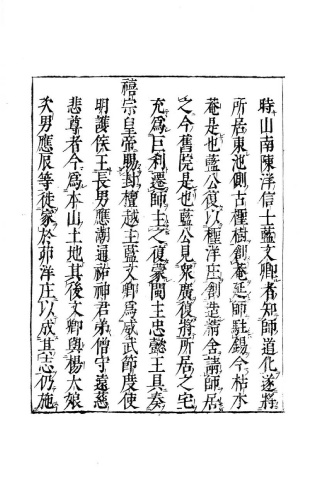 時山南陳洋信士藍文卿者知師道化遂將
所居東池側古檉樹創菴延師駐錫今枯木
菴是也藍公復以檉洋庄創造精舍請師居
之今舊院是也藍公見衆廣復將所居之宅
充為巨利遷師主之復蒙閩王忠懿王具奏
禧宗皇帝賜封檀越主藍文卿為威武節度使
明護侯王長男應潮通祐神君弟僧守遠慈
悲尊者今為本山土地其後文卿與楊大娘
次男應辰等徙家於茆洋庄以成其志仍施